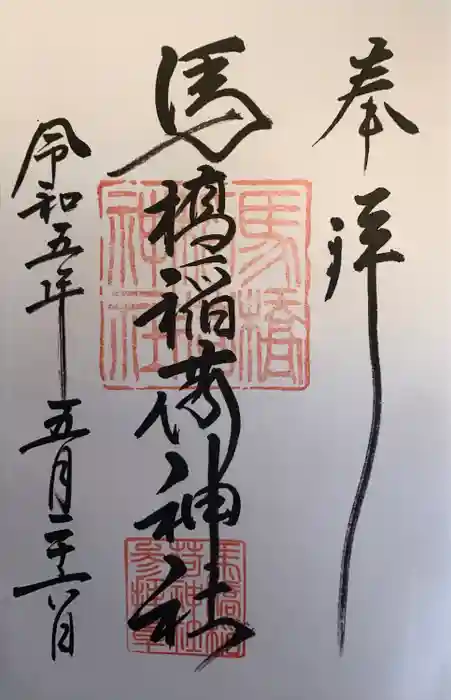 奉拝
馬橋稲荷神社
令和五年 五月二十八日
馬橋
稲荷
神社
馬橋稲
荷神社
参拝章